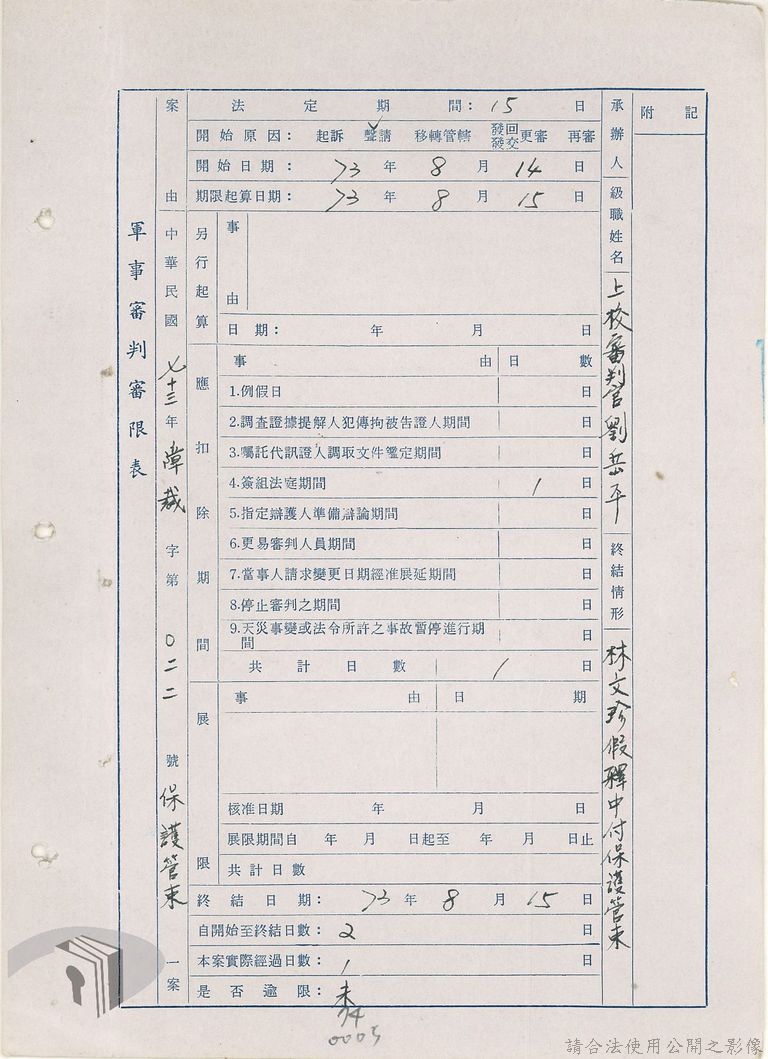 軍事審判審限表
案由 中華民國七十三年障裁字第〇二二號保護管束一案
法定期間：15日
開始原因：起訴 聲請 移轉管轄 發回發交更審 再審
開始日期：73年8月14日
期限起算日期：73年8月15日
另行起算
事由
日期：年月日
應扣除期間
事由 日數
1.例假日 日
2.調查證據提解人犯傳拘被告證人期間 日
3.囑託代訊證人調取文件鑑定期間 日
4.簽組法庭期間 1日
5.指定辯護人準備辯論期間 日
6.更易審判人員期間 日
7.當事人請求變更日期經准展延期間 日
8.停止審判之期間 日
9.天災事變或法令所許之事故暫停進行期間 日
共計日數 1日
展限
事由 日期
核准日期 年月日
展限期間自 年月日起至 年月日止
共計日數
終結日期：73年8月15日
自開始至終結日數：2日
本案實際經過日數：1日
是否逾限：未
承辦人級職姓名 上校審判官劉岳平
終結情形 林文珍假釋中付保護管束
附記
74
0005
請合法使用公開之影像